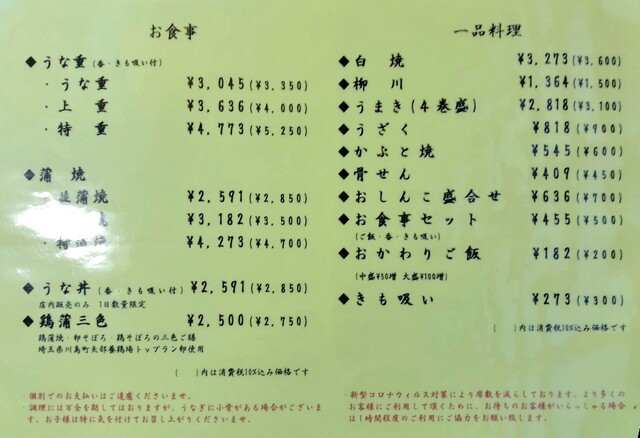 お食事
◆うな重(香・きも吸い付)
・うな重 ¥3,045(¥3,350)
・上重 ¥3,636(¥4,000)
・特重 ¥4,773(¥5,250)
◆蒲焼
並蒲焼 ¥2,591(¥2,850)
焼 ¥3,182(¥3,500)
・特蒲焼 ¥4,273(¥4,700)
◆うな丼(香・きも吸い付) ¥2,591(¥2,850)
店内販売のみ 1日数量限定
◆鶏蒲三色 ¥2,500(¥2,750)
鶏蒲焼・卵そぼろ・鶏そぼろの三色ご膳
埼玉県川島町矢部養鶏場トップラン卵使用
( )内は消費税10%込み価格です
・個別でのお支払いはご遠慮くださいませ。
・調理には万全を期してはおりますが、うなぎに小骨がある場合がございま
す、お子様は特に気を付けてお召し上がりくださいませ。
一品料理
◆白焼 ¥3,273(¥3,600)
◆柳川 ¥1,364(¥1,500)
◆うまき(4巻盛) ¥2,818(¥3,100)
◆うざく ¥818(¥900)
◆かぶと焼 ¥545(¥600)
◆骨せん ¥409(¥450)
◆おしんこ盛合せ ¥636(¥700)
◆お食事セット ¥455(¥500)
(ご飯・香・きも吸い)
◆おかわりご飯 ¥182(¥200)
(中盛¥50増 大盛¥100増)
◆きも吸い ¥273(¥300)
( )内は消費税10%込み価格です
・新型コロナウィルス対策により席数を減らしております。より多くの
お客様にご利用して頂くために、お待ちのお客様がいらっしゃる場合
は1時間程度のご利用にご協力をお願い致します。